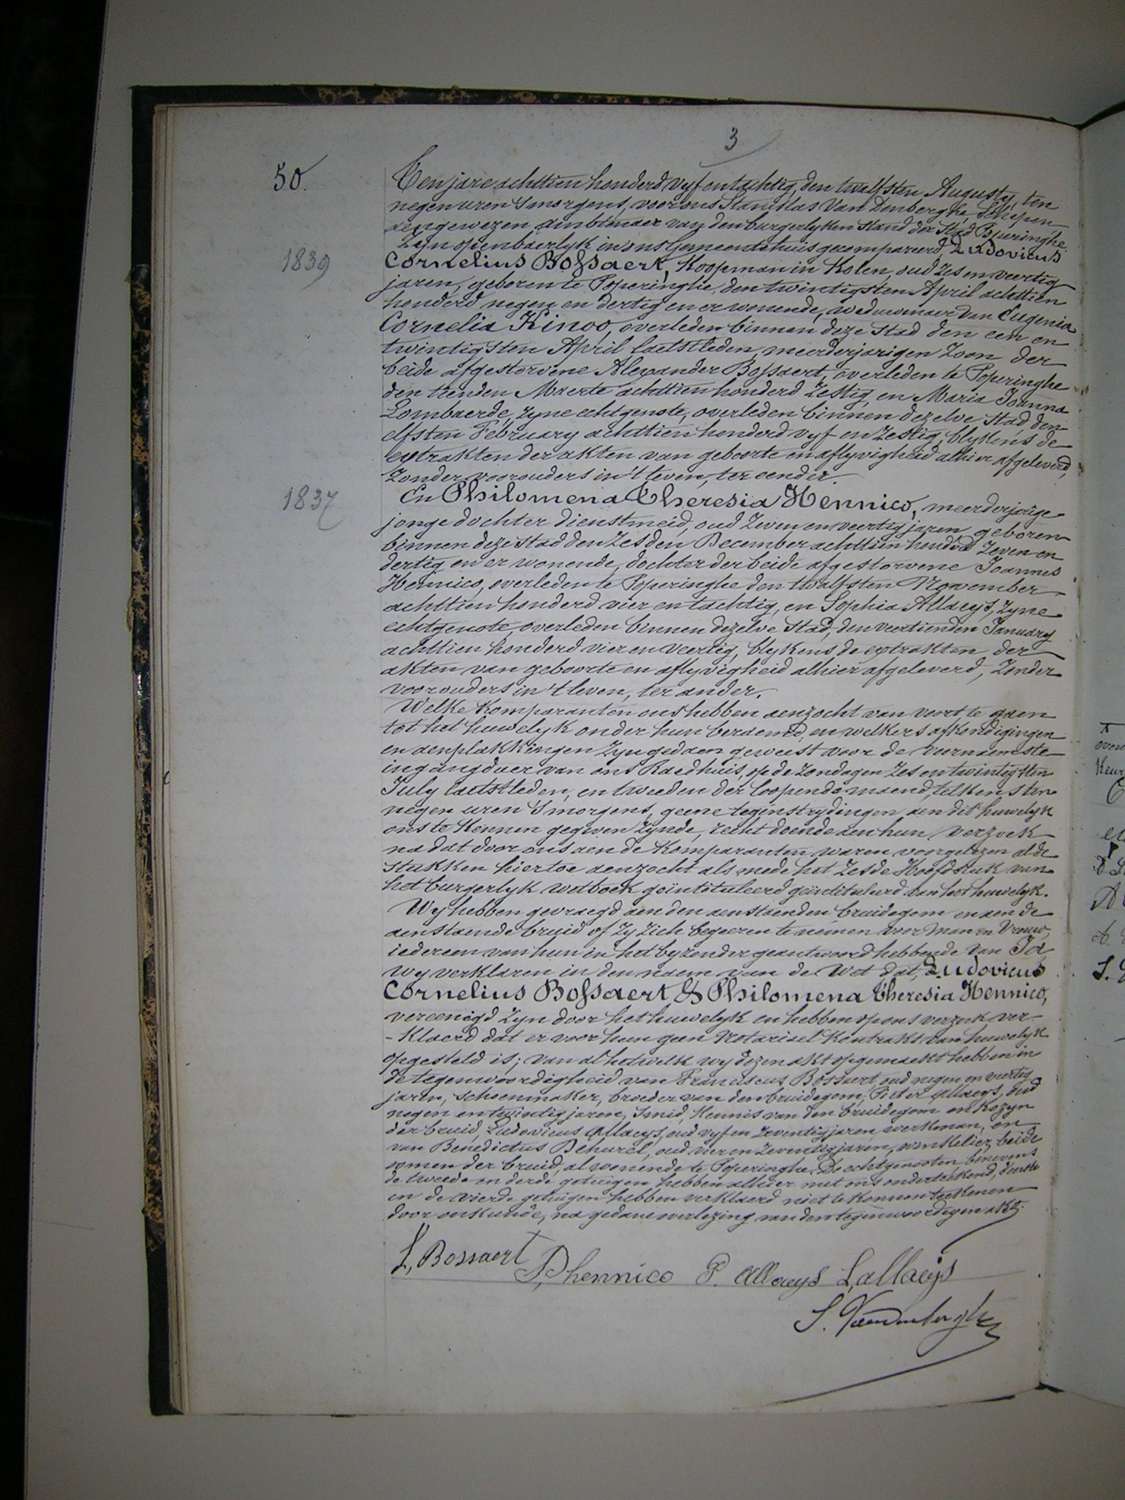 3
50.
Ten jare achttien honderd vyf en tachtig, den twalfsten Augusty, ten
negen uren 's morgens, voor ons Stanislas Van Denberghe Schepen
aengewezen Ambtenaer van den burgerlyken Stand der Stad Poperinghe
Zyn openbaerlyk in ons Gemeentehuis gecompareerd, Ludovicus
1839
Cornelius Bossaert, Koopman in kolen, oud zes en veertig
jaren, geboren te Poperinghe, den twintigsten April achttien
honderd negen en dertig en er wonende, weduwnaer van Eugenia
Cornelia Kinoo, overleden binnen deze Stad den een en
twintigsten April laetstleden, meerderjarigen zoon der
beide afgestorvene Alexander Bossaert, overleden te Poperinghe
den tienden Maerte achttien honderd zestig, en Maria Joanna
Lombaerde, zyne echtgenote, overleden binnen dezelve Stad, den
elfsten February achttien honderd vyf en zestig, blykens de
extrakten der akten van geboorte en aflyvigheid alhier afgeleverd,
zonder voorouders in 't leven, ter eender.
1837
En Philomena Theresia Hennico, meerderjarige
jonge dochter dienstmeid, oud zeven en veertig jaren, geboren
binnen deze stad den zesden December achttien honderd zeven en
dertig en er wonende, dochter der beide afgestorvene Joannes
Hennico, overleden te Poperinghe den twalfsten November
achttien honderd vier en tachtig, en Sophia Allaeys, zyne
echtgenote, overleden binnen dezelve Stad, den veertienden January
achttien honderd vier en veertig, blykens de extrakten der
akten van geboorte en aflyvigheid alhier afgeleverd, zonder
voorouders in 't leven, ter ander.
Welke komparanten ons hebben aenzocht van voort te gaen
tot het huwelyk onder hun beraemd, en welkers afkondigingen
en aenplakkingen zyn gedaen geweest voor de voornaemste
ingangdeur van ons Raedhuis, op de zondagen zes en twintigsten
July laetstleden, en tweeden der loopende maend telkens ten
negen uren 's morgens, geene tegenstrydingen aen dit huwelyk
ons te kennen gegeven zynde, recht doende aen hun verzoek
na dat door ons aen de komparanten waren voorgelezen al de
stukken hiertoe aenzocht als mede het zesde Hoofdstuk van
het burgerlyk wetboek geintituleerd geintituleerd van het huwelyk.
Wy hebben gevraegd aen den aenstaenden bruidegom en aen de
aenstaende bruid of zy zich begeeren te nemen voor Man en Vrouw,
iedereen van hun in het byzonder geantwoord hebbende van Ja
wy verklaren in den naem van de Wet dat, Ludovicus
Cornelius Bossaert & Philomena Theresia Hennico,
vereenigd zyn door het huwelyk en hebben op ons verzoek ver-
-klaerd dat er voor hun geen Notarieel Kontrakt van huwelyk
opgesteld is; van al hetwelk wy dezen akt opgemaekt hebben in
de tegenwoordigheid van Franciscus Bossaert, oud negen en veertig
jaren, schoenmaker, broeder van den bruidegom, Pieter Allaeys, oud
negen en twintig jaren, smid, kennis van den bruidegom en kozyn
der bruid, Ludovicus Allaeys, oud vyf en zeventig jaren, werkman, en
van Benedictus Dehurel, oud vier en zeventig jaren, winkelier, beide
oomen der bruid, al wonende te Poperinghe. De echtgenooten benevens
de tweede en derde getuigen hebben alhier met ons onderteekend, d'eerste
en de vierde getuigen hebben verklaerd niet te konnen teekenen
door onkunde, na gedane voorlezing van den tegenwoordigen akt.
L. Bossaert Phennico P. Allaeys L. allaeys
S. Vandenberghe